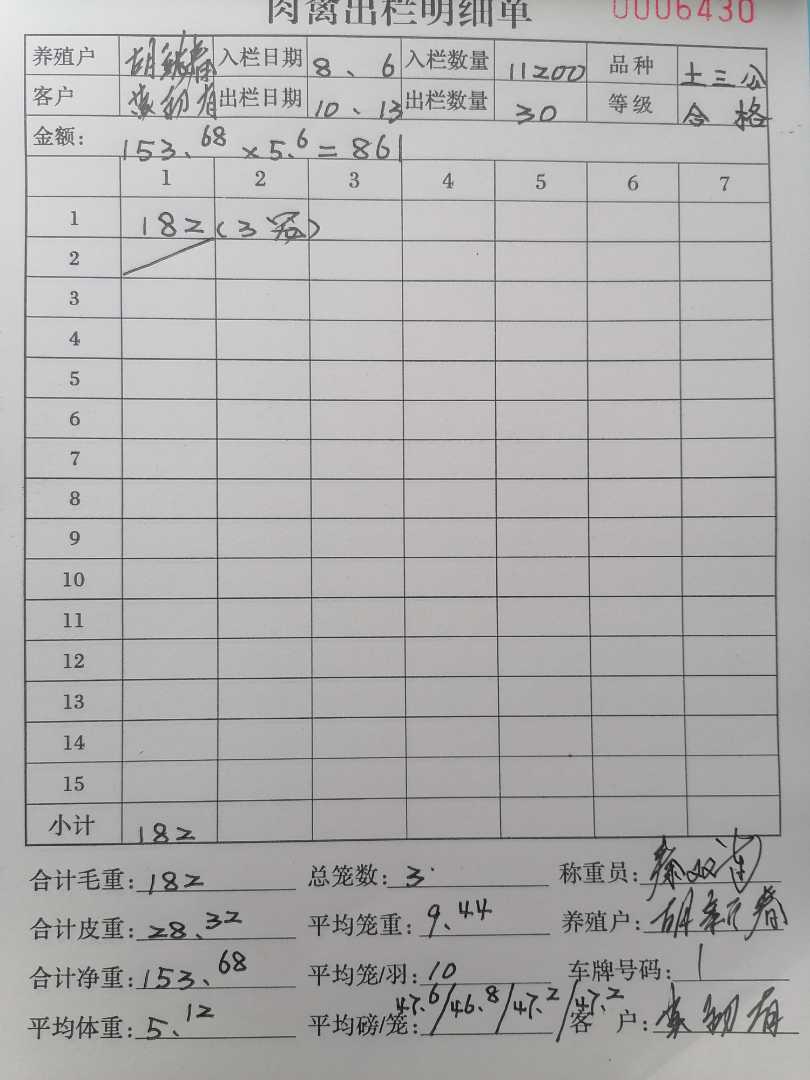 肉禽出栏明细单 0006430
养殖户 胡新春 入栏日期 8、6 入栏数量 11200 品种 土三公
客户 袁初有 出栏日期 10、13 出栏数量 30 等级 合格
金额: 153.68 × 5.6 = 861
1 2 3 4 5 6 7
1 182(3笼)
2
3
4
5
6
7
8
9
10
11
12
13
14
15
小计 182
合计毛重: 182 总笼数: 3 称重员:
合计皮重: 28.32 平均笼重: 9.44 养殖户: 胡新春
合计净重: 153.68 平均笼/羽: 10 车牌号码: 1
平均体重: 5.12 平均磅/笼: 47.6/46.8/47.2/47.2 客 户: 袁初有